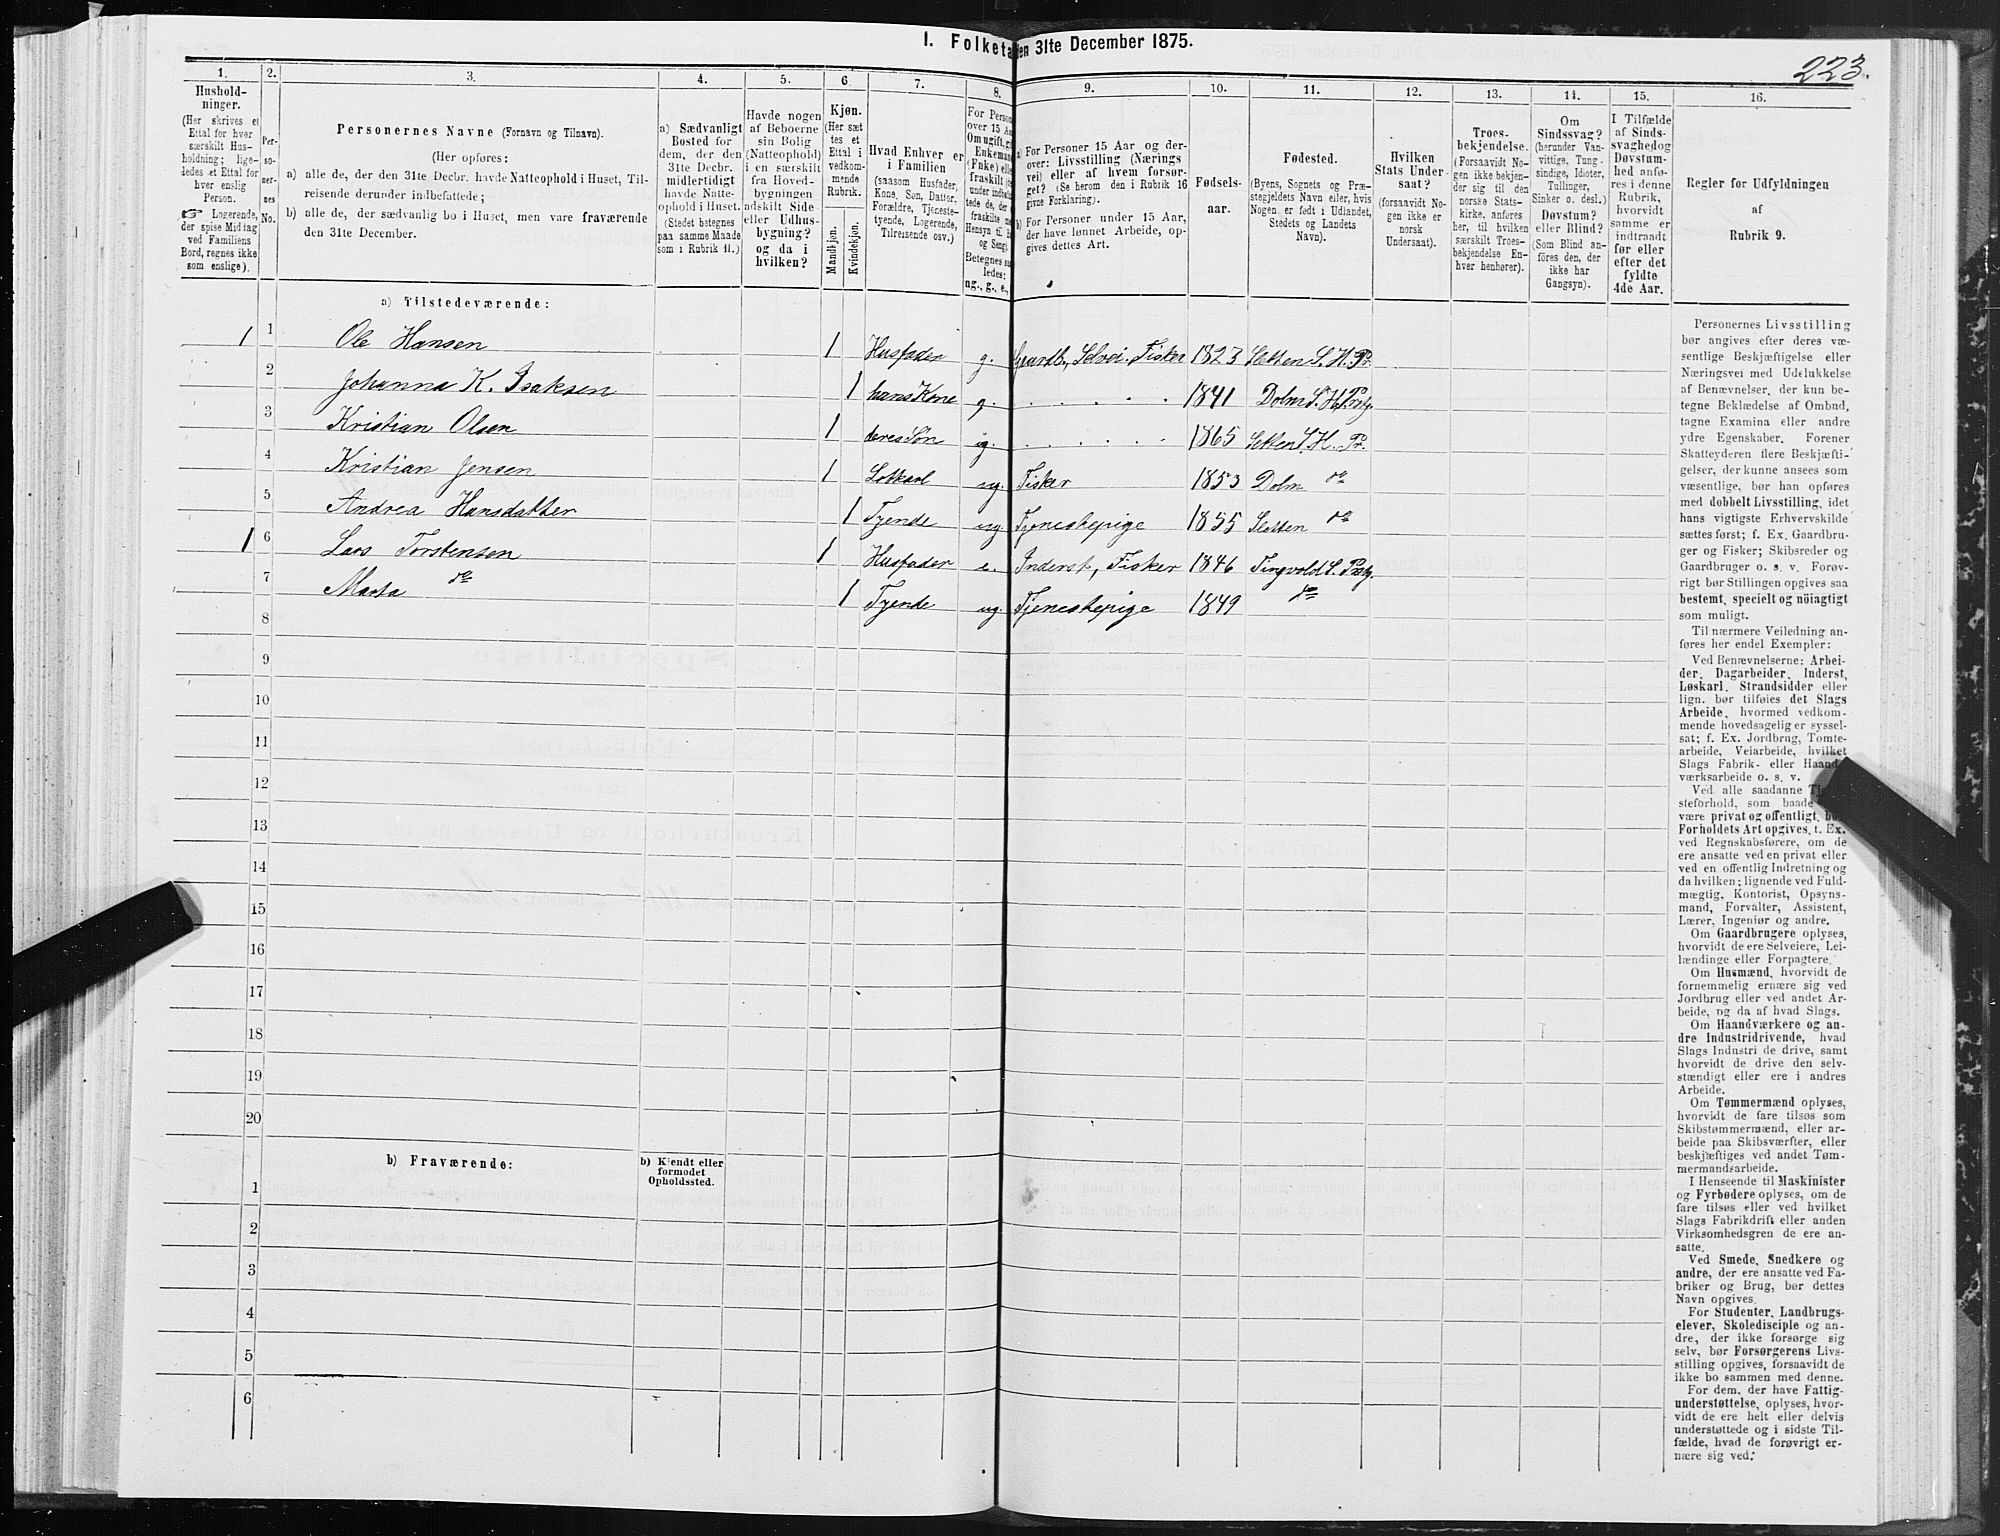 I. Folketa en 31te December 1875.
223.
1.
Hushold-
ninger.
(Her skrives et
Ettal for hver
særskilt Hus-
holdning; lige-
ledes et Ettal for
hver enslig
Person.
☞ Logerende,
der spise Middag
ved Familiens
Bord, regnes ikke
som enslige).
2.
Per-
so-
ner-
nes
No.
3.
Personernes Navne (Fornavn og Tilnavn).
(Her opføres:
a) alle de, der den 31te Decbr. havde Natteophold i Huset, Til-
reisende derunder indbefattede;
b) alle de, der sædvanlig bo i Huset, men vare fraværende
den 31te December.
4.
a) Sædvanligt
Bosted for
dem, der den
31te Decbr.
midlertidigt
havde Natte-
ophold i Huset.
(Stedet betegnes
paa samme Maade
som i Rubrik 11.)
5.
Havde nogen
af Beboerne
sin Bolig
(Natteophold)
i en særskilt
fra Hoved-
bygningen
adskilt Side-
eller Udhus-
bygning?
og da i
hvilken?
6.
Kjøn.
(Her sæt
tes et
Ettal i
vedkom-
mende
Rubrik.
Mandkjøn.
Kvindekjøn.
7.
Hvad Enhver er
i Familien
(saasom Husfader,
Kone, Søn, Datter,
Forældre, Tjeneste-
tyende, Logerende,
Tilreisende osv.)
8.
For Person
over 15 Aa
Om ugift, g
Enkemand
(Enke) elle
fraskilt (
under indb
tede de, d
fraskilte m
Hensyn til B
og Seng).
Betegnes sa
ledes:
ug., g., e.,
9.
a) For Personer 15 Aar og der-
over: Livsstilling (Nærings
vei) eller af hvem forsør-
get? (Se herom den i Rubrik 16
givne Forklaring).
b) For Personer under 15 Aar,
der have lønnet Arbeide, op-
gives dettes Art.
10.
Fødsels-
aar.
11.
Fødested.
(Byens, Sognets og Præ-
stegjeldets Navn eller, hvis
Nogen er født i Udlandet,
Stedets og Landets
Navn).
12.
Hvilken
Stats Under-
saat?
(forsaavidt No-
gen ikke er
norsk
Undersaat).
13.
Troes-
bekjendelse.
(Forsaavidt No-
gen ikke bekjen-
der sig til den
norske Stats-
kirke, anføres
her, til hvilken
særskilt Troes-
bekjendelse En-
hver henhører).
14.
Om
Sindssvag?
(herunder Van-
vittige, Tung-
sindige, Idioter,
Tullinger,
Sinker o. desl.)
Døvstum?
eller Blind?
(Som Blind an-
føres den, der
ikke har
Gangsyn).
15.
I Tilfælde
af Sinds-
svaghed og
Døvstum-
hed anfø-
res i denne
Rubrik,
hvorvidt
samme er
indtraadt
før eller
efter det
fyldte
4de Aar.
16.
Regler for Udfyldningen
af
Rubrik 9.
a) Tilstedeværende:
1 1 Ole Hansen 1 Husfader g. Gaardb., Selvei. Fisker 1823 Sletten S. H. Pr.
2 Johanna K. Isaksen 1 hans Kone g. 1841 Dolm S. H. Prstg.
3 Kristian Olsen 1 deres Søn ug. 1865 Sletten S. H. Pr.
4 Kristian Jensen 1 Losskarl ug. Fisker 1853 Dolm do
5 Andrea Hansdatter 1 Tyende ug Tjenestepige 1855 Sletten do
1 6 Lars Torstensen 1 Husfader e. Inderst, Fisker 1846 Tingvold S. Prstg.
7 Marta do 1 Tyende ug. Tjenestepige 1849 do
8
9
10
11
12
13
14
15
16
17
18
19
20
b) Fraværende:
b) Kjendt eller
formodet
Opholdssted.
1
2
3
4
5
6
Personernes Livsstilling
bør angives efter deres væ-
sentlige Beskjæftigelse eller
Næringsvei med Udelukkelse
af Benævnelser, der kun be-
tegne Beklædelse af Ombud,
tagne Examina eller andre
ydre Egenskaber. Forener
Skatteyderen flere Beskjæfti-
gelser, der kunne ansees som
væsentlige, bør han opføres
med dobbelt Livsstilling, idet
hans vigtigste Erhvervskilde
sættes først; f. Ex. Gaardbru-
ger og Fisker; Skibsreder og
Gaardbruger o. s. v. Forøv-
rigt bør Stillingen opgives saa
bestemt, specielt og nöiagtigt
som muligt.
Til nærmere Veiledning an-
føres her endel Exempler:
Ved Benævnelserne: Arbei-
der, Dagarbeider, Inderst,
Løskarl, Strandsidder eller
lign. bør tilføies det Slags
Arbeide, hvormed vedkom-
mende hovedsagelig er syssel-
sat; f. Ex. Jordbrug, Tomte-
arbeide, Veiarbeide, hvilket
Slags Fabrik- eller Haand-
værksarbeide o. s. v.
Ved alle saadanne
steforhold, som baade
være privat og offentligt,
Forholdets Art opgives, t. Ex.
ved Regnskabsførere, om de
ere ansatte ved en privat eller
ved en offentlig Indretning og
da hvilken; lignende ved Fuld-
mægtig, Kontorist, Opsyns-
mand, Forvalter, Assistent,
Lærer, Ingeniør og andre.
Om Gaardbrugere oplyses,
hvorvidt de ere Selveiere, Lei-
lændinge eller Forpagtere.
Om Husmænd, hvorvidt de
fornemmelig ernære sig ved
Jordbrug eller ved andet Ar-
beide, og da af hvad Slags.
Om Haandværkere og an-
dre Industridrivende, hvad
Slags Industri de drive, samt
hvorvidt de drive den selv-
stændigt eller ere i andres
Arbeide.
Om Tømmermænd oplyses,
hvorvidt de fare tilsøs som
Skibstømmermænd, eller ar-
beide paa Skibsværfter, eller
beskjæftiges ved andet Tøm-
mermandsarbeide.
I Henseende til Maskinister
og Fyrbødere oplyses, om de
fare tilsøs eller ved hvilket
Slags Fabrikdrift eller anden
Virksomhedsgren de ere an-
satte.
Ved Smede, Snedkere og
andre, der ere ansatte ved Fa-
briker og Brug, bør dettes
Navn opgives.
For Studenter, Landbrugs-
elever, Skoledisciple og an-
dre, der ikke forsørge sig
selv, bør Forsørgerens Livs-
stilling opgives, forsaavidt de
ikke bo sammen med denne.
For dem, der have Fattig-
understøttelse, oplyses, hvor-
vidt de ere helt eller delvis
understøttede og i sidste Til-
fælde, hvad de forøvrigt er-
nære sig ved.